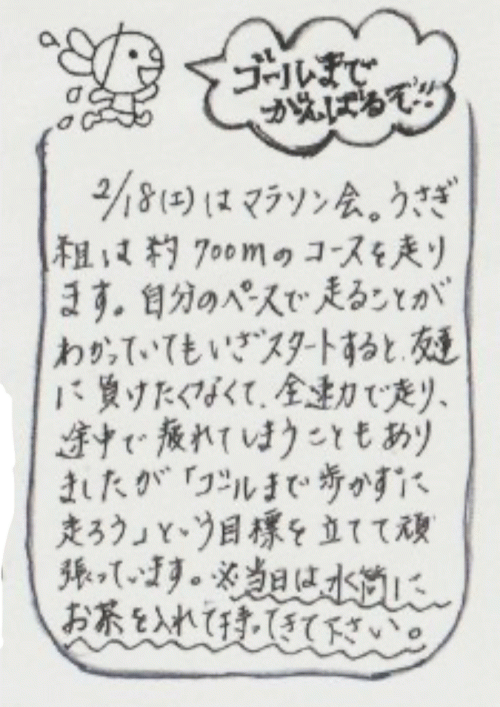 ゴールまで
がんばるぞ!!
2/18(土)はマラソン会。うさぎ
組は約700mのコースを走り
ます。自分のペースで走ることが
わかっていてもいざスタートすると、友達
に負けたくなくて、全速力で走り、
途中で疲れてしまうこともあり
ましたが「ゴールまで歩かずに
走ろう」という目標を立てて頑
張っています。※当日は水筒に
お茶を入れて持ってきて下さい。